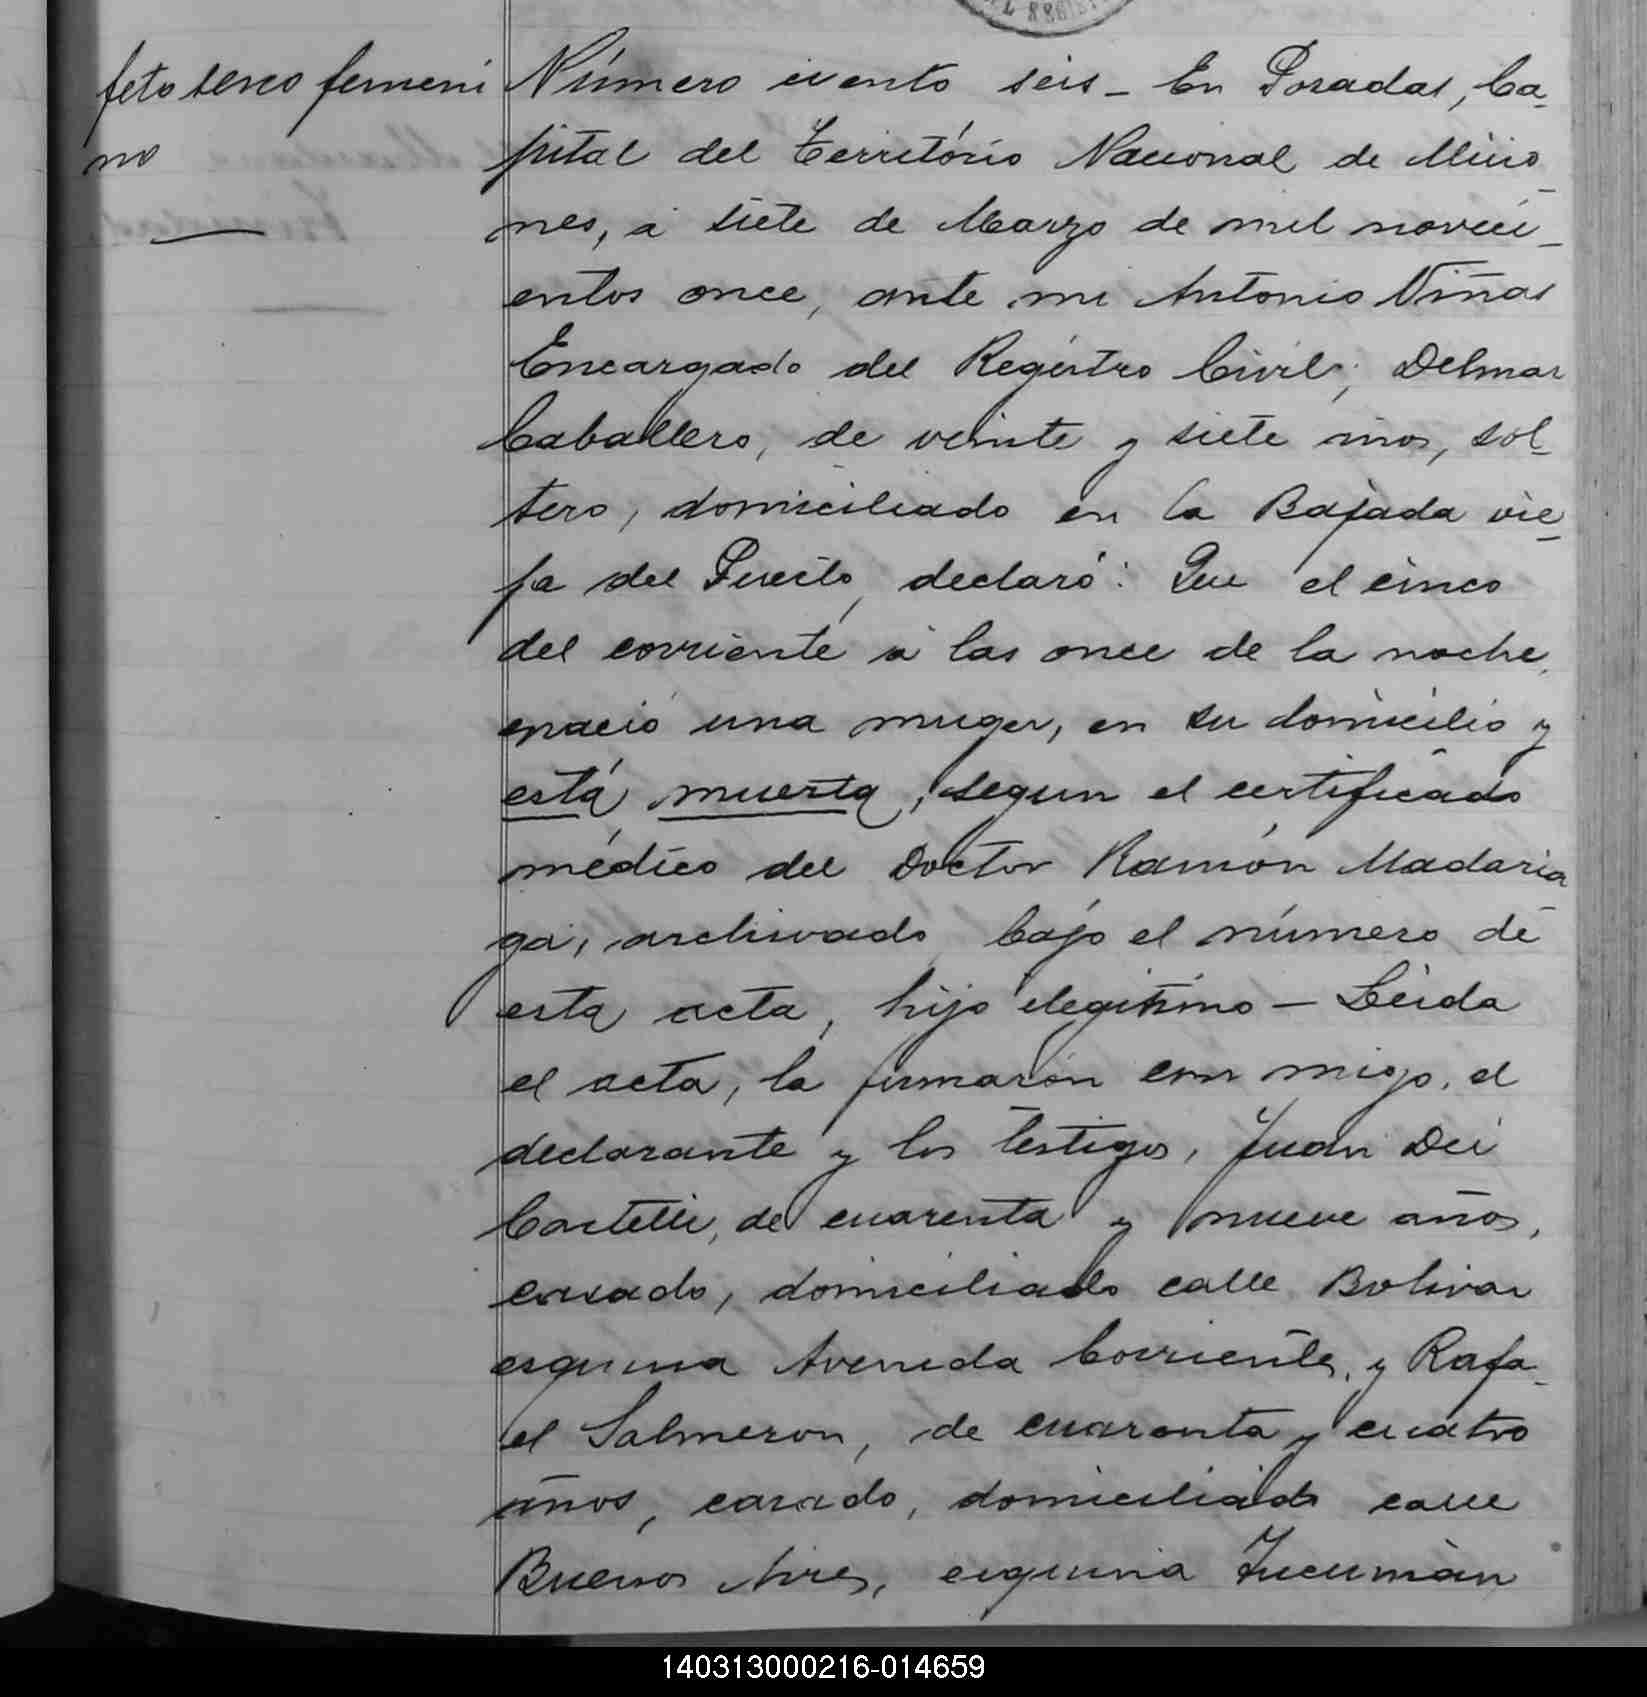 feto sexo femeni
no
Número ciento seis - En Posadas, Ca-
pital del Território Nacional de Misio
nes, á siete de Marzo de mil noveci-
entos once, ante mi Antonio Viñas
Encargado del Registro Civil; Delmar
Caballero, de veinte y siete años, sol-
tero, domiciliado en la Bajada vie-
ja del Puerto, declaró: Que el cinco
del corriente á las once de la noche,
nació una muger, en su domicilio y
está muerta, segun el certificado
médico del Doctor Ramón Madaria
ga, archivado bajo el número de
esta acta, hijo ilegitimo - Leida
el acta, la firmaron con migo, el
declarante y los testigos, Juan Dei
Castelli, de cuarenta y nueve años,
casado, domiciliado calle Bolivar
esquina Avenida Corrientes, y Rafa-
el Salmeron, de cuaranta y cuatro
años, casado, domiciliado calle
Buenos Aires, esquina Tucumàn
140313000216-014659